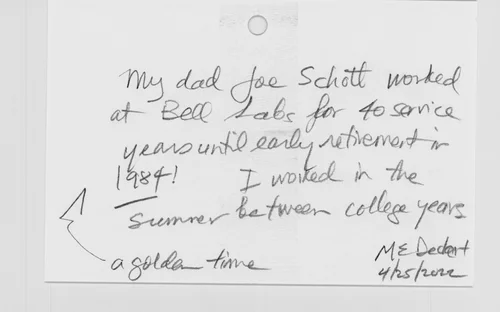 My dad Joe Schott worked
at Bell Labs for 40 service
years until early retirement in
1984! I worked in the
summer between college years
a golden time
M E Deckert
4/25/2022